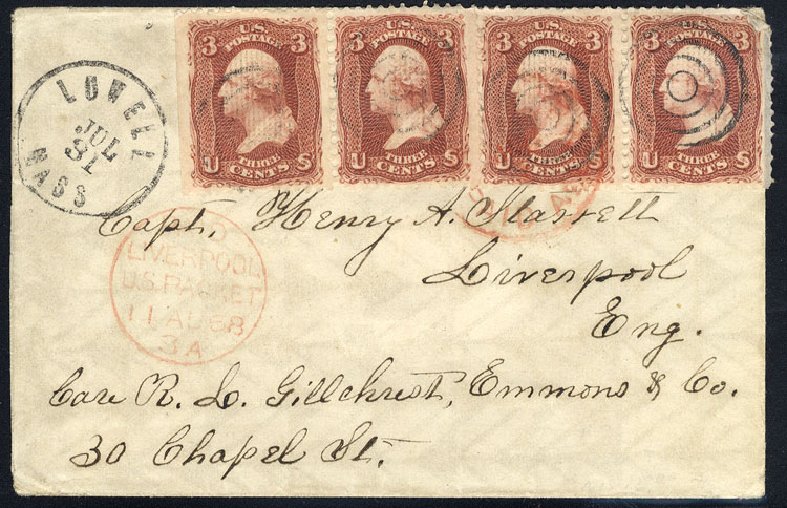 U.S. POSTAGE 3 3 THREE CENTS U S
U.S. POSTAGE 3 3 THREE CENTS U S
U.S. POSTAGE 3 3 THREE CENTS U S
U.S. POSTAGE 3 3 THREE CENTS U S
LOWELL
JUL
31
MASS
Capt. Henry A. Starrett
Liverpool
Eng.
LIVERPOOL
U.S. PACKET
11 AU 68
3 A
Care R. L. Gillchrest, Emmons & Co.
30 Chapel St.